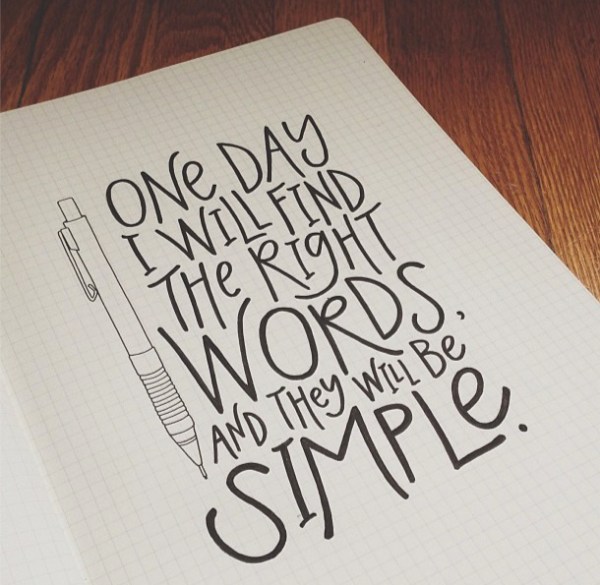 ONe DAY
I WILL FIND
THe RIgHT
WORDS,
AND THey WILL Be
SIMPLe.